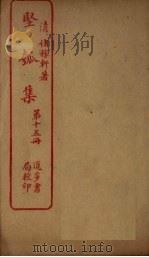 清褚稼軒著
堅瓠集
第十五冊
進步書局校印